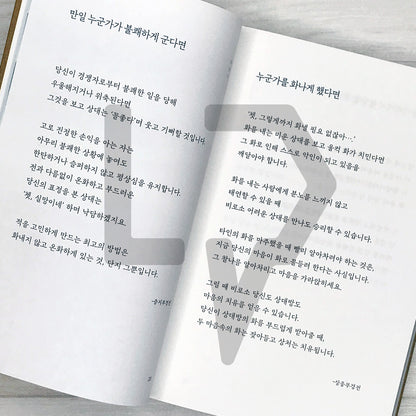 만일 누군가가 불쾌하게 군다면
당신이 경쟁자로부터 불쾌한 일을 당해
우울해지거나 위축된다면
그것을 보고 상대는 '꼴좋다'며 웃고 기뻐할 것입니다.
고로 진정한 손익을 아는 자는
아무리 불쾌한 상황에 놓여도
한탄하거나 슬퍼하지 않고 평상심을 유지합니다.
전과 다름없이 온화하고 부드러운
당신의 표정을 본 상대는
'쳇, 실망이네' 하며 낙담하겠지요.
적을 고민하게 만드는 최고의 방법은
화내지 않고 온화하게 있는 것, 단지 그뿐입니다.
-증지부경전
누군가를 화나게 했다면
'쳇, 그렇게까지 화낼 필요 없잖아…'
화를 내는 미운 상대를 보고 울컥 화가 치민다면
그 화로 인해 스스로 악인이 되고 있음을
깨달아야 합니다.
화를 내는 사람에게 분노를 느끼지 않고
태연할 수 있을 때
비로소 어려운 상대를 만나도 승리할 수 있습니다.
타인의 화를 마주했을 때 빨리 알아차려야 하는 것은,
지금 당신의 마음이 화로 물들려 한다는 사실입니다.
그 찰나를 알아차리고 마음을 가라앉히세요.
그럴 때 비로소 당신도 상대방도
마음의 치유를 얻을 수 있습니다.
당신이 상대방의 화를 부드럽게 받아줄 때,
두 마음속의 화는 잦아들고 상처는 치유됩니다.
-상응부경전